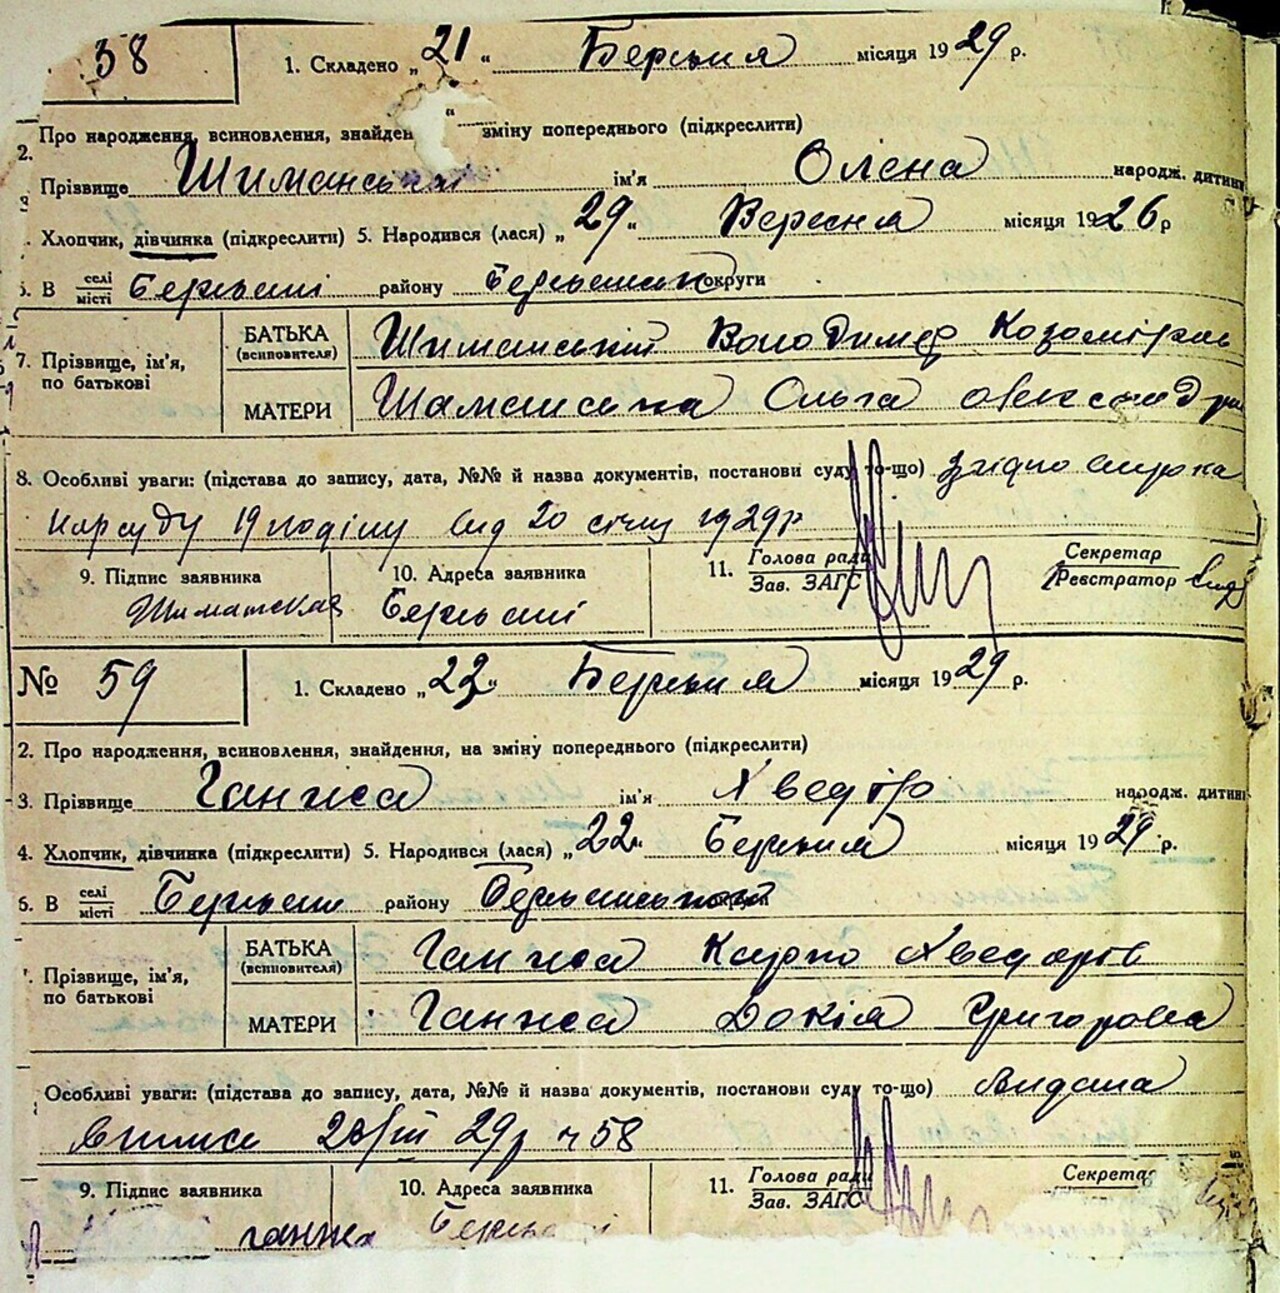 58 1. Складено „21“ Березня місяця 1929 р.
2. Про народження, всиновлення, знайден зміну попереднього (підкреслити)
Прізвище Шиманська ім'я Олєна народж. дитини
Хлопчик, дівчинка (підкреслити) 5. Народився (лася) „29“ Вересня місяця 1926 р
В селі місті району округи
7. Прізвище, ім'я, по батькові БАТЬКА (всиновителя) Шиманський Володимер
МАТЕРИ Шиманська Ольга Олександр
8. Особливі уваги: (підстава до запису, дата, №№ й назва документів, постанови суду то-що) Згідно
Нарсуду 19 від 20 січня 1929р
9. Підпис заявника 10. Адреса заявника 11. Голова ради Зав. ЗАГС Секретар Реєстратор
Шиманская
№ 59 1. Складено „22“ Березня місяця 1929 р.
2. Про народження, всиновлення, знайдення, на зміну попереднього (підкреслити)
3. Прізвище Ганжа ім'я Хведір народж. дитини
4. Хлопчик, дівчинка (підкреслити) 5. Народився (лася) „22“ Березня місяця 1929 р.
В селі місті району
Прізвище, ім'я, по батькові БАТЬКА (всиновителя) Ганжа Карпо Хведорів
МАТЕРИ Ганжа Докія Григорова
Особливі уваги: (підстава до запису, дата, №№ й назва документів, постанови суду то-що) Видана
29р 58
9. Підпис заявника 10. Адреса заявника 11. Голова ради Зав. ЗАГС Секретар
ганжа